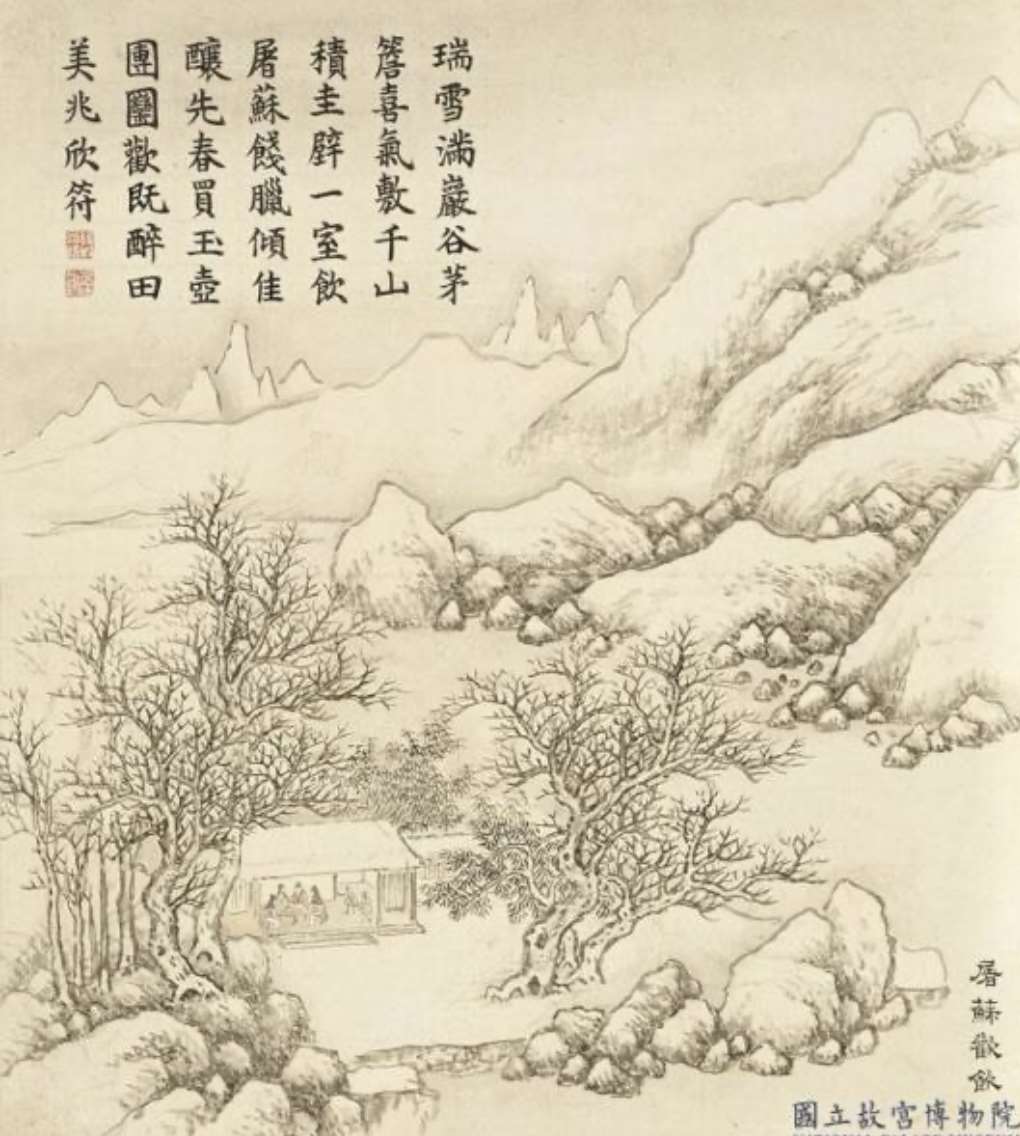 瑞雪滿巖谷茅
簷喜氣敷千山
積圭璧一室飲
屠蘇餞臘傾佳
釀先春買玉壺
團圞歡旣醉田
美兆欣符
屠蘇歡飲
國立故宮博物院